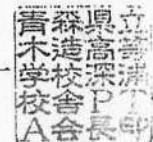 青森県立
木造高等
学校深浦
校舎PT
A会長印